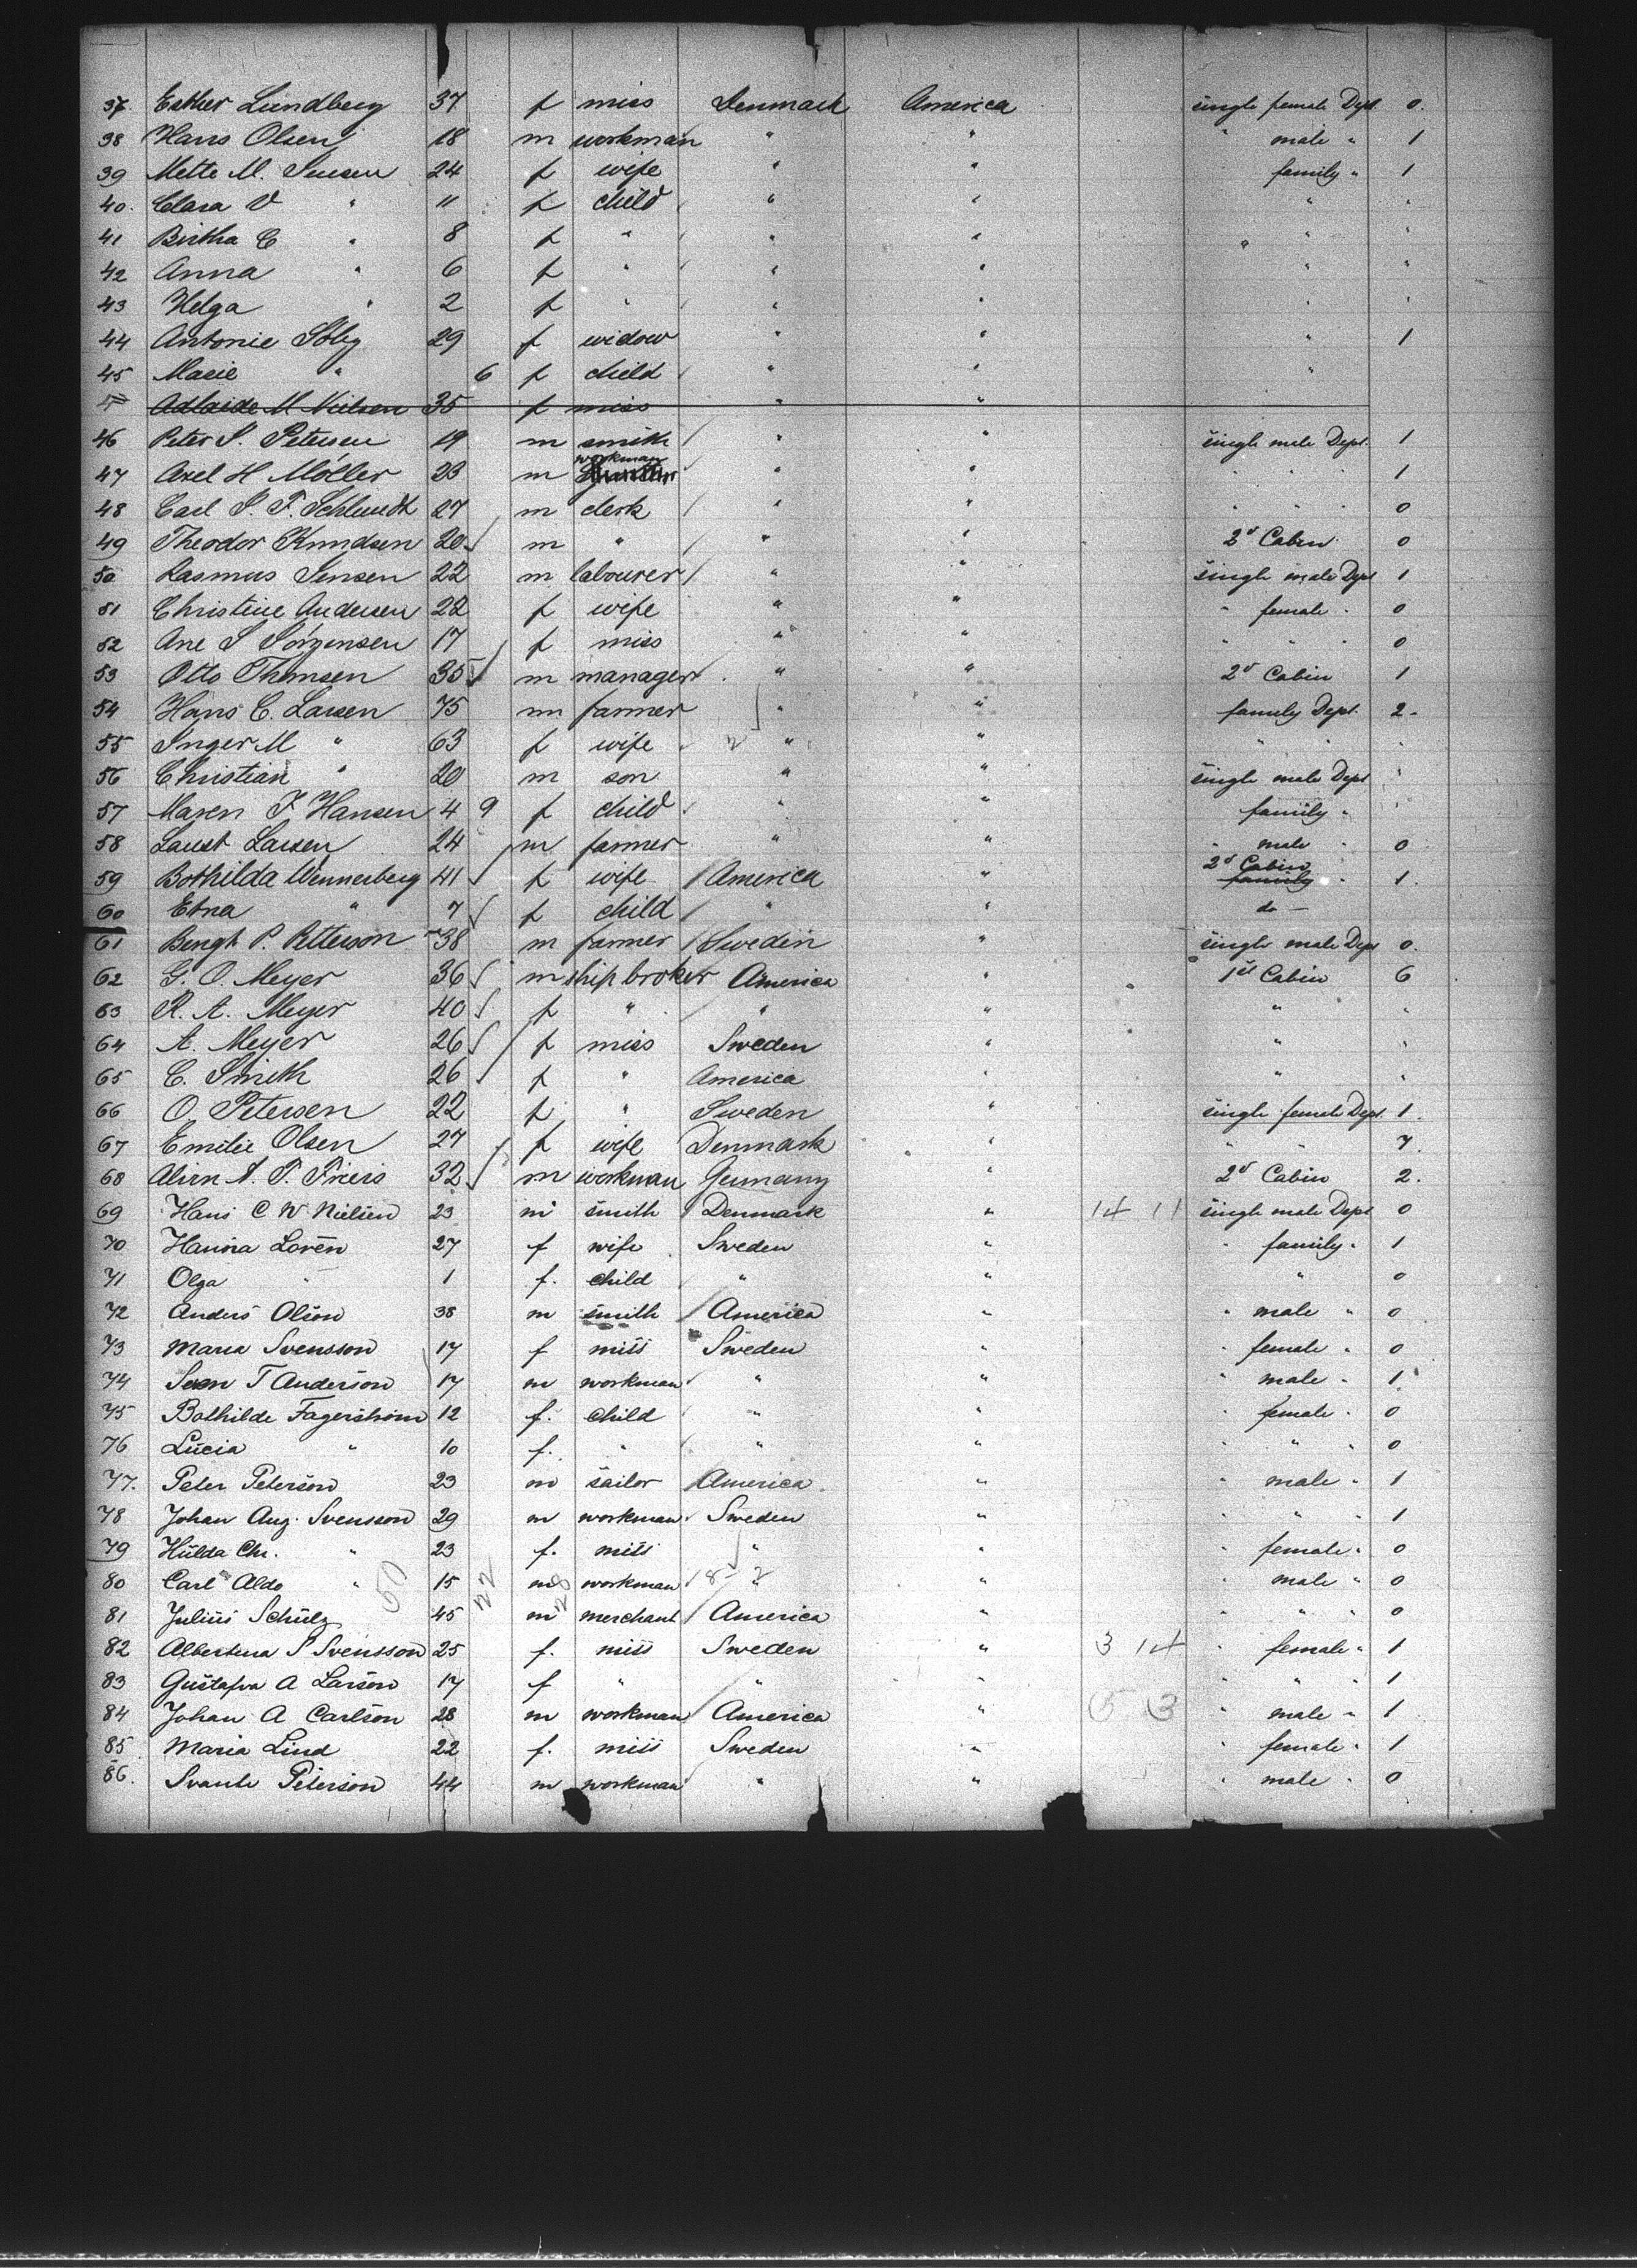 37. Esther Lundberg 37 f miss Denmark America single female Dept. 0.
38 Hans Olsen 18 m workman " " " male " 1
39 Mette M. Jensen 24 f wife " " family " 1
40. Clara V " 11 f child " " " "
41 Birtha C " 8 f " " " " " "
42 Anna " 6 f " " " " "
43 Helga " 2 f " " " " "
44 Antonie Toby 29 f widow " " " 1
45 Marie " 6 f child " " "
Adlaide M Nielsen 35 f miss " "
46 Peter S. Petersen 19 m smith " " single male Dept. 1
workman
47 Axel H Möller 23 m " " " " " 1
48 Carl S. F. Schlundt 27 m clerk " " " " " 0
49 Theodor Knudsen 20 m " " " 2d Cabin 0
50 Rasmus Jensen 22 m labourer " " single male Dept 1
51 Christine Andersen 22 f wife " " " female " 0
52 Ane S Jörgensen 17 f miss " " " " " 0
53 Otto Thomsen 35 m manager " " 2d Cabin 1
54 Hans C. Larsen 75 m farmer " " family Dept. 2.
55 Inger M " 63 f wife 2 " " " " "
56 Christian " 20 m son " " single male Dept "
57 Maren J Hansen 4 9 f child " " family "
58 Laust Larsen 24 m farmer " " " male " 0
2d Cabin
59 Bothilda Wennerberg 41 f wife America " family " 1.
60 Etna " 7 f child " " do —
61 Bengt P. Petterson 38 m farmer Sweden " single male Dept 0.
62 G. O. Meyer 36 m ship broker America " 1st Cabin 6
63 R. A. Meyer 40 f " " " " "
64 A. Meyer 26 f miss Sweden " " "
65 C. Smith 26 f " America " " "
66 O. Petersen 22 f " Sweden " single female Dept. 1.
67 Emilie Olsen 27 f wife Denmark " " " 7.
68 A. P. Friers 32 m workman Germany " 2d Cabin 2.
69 Hans C W Nielsen 23 m smith Denmark " 14 11 single male Dept 0
70 Hanna Lorén 27 f wife Sweden " " family " 1
71 Olga " 1 f. child " " " 0
72 Anders Olson 38 m smith America " " male " 0
73 Maria Svensson 17 f miss Sweden " " female " 0
74 Sven T Anderson 17 m workman " " " male " 1
75 Bothilde Fagerstrom 12 f. child " " " female " 0
76 Lucia " 10 f. " " " " " " 0
77. Peter Peterson 23 m sailor America " " male " 1
78 Johan Aug. Svensson 29 m workman Sweden " " " " 1
79 Hulda Chr. " 23 f. miss " " " female " 0
80 Carl Aldo " 50 15 22 m 28 workman 8 2 " " " male " 0
81 Julius Schulz 45 m merchant America " " " " 0
82 Albertina S Svensson 25 f. miss Sweden " 3 14 " female " 1
83 Gustafva A Larson 17 f " " " " " " 1
84 Johan A Carlson 28 m workman America " 5 3 " male " 1
85 Maria Lind 22 f. miss Sweden " " female " 1
86. Svante Peterson 44 m workman " " " male " 0